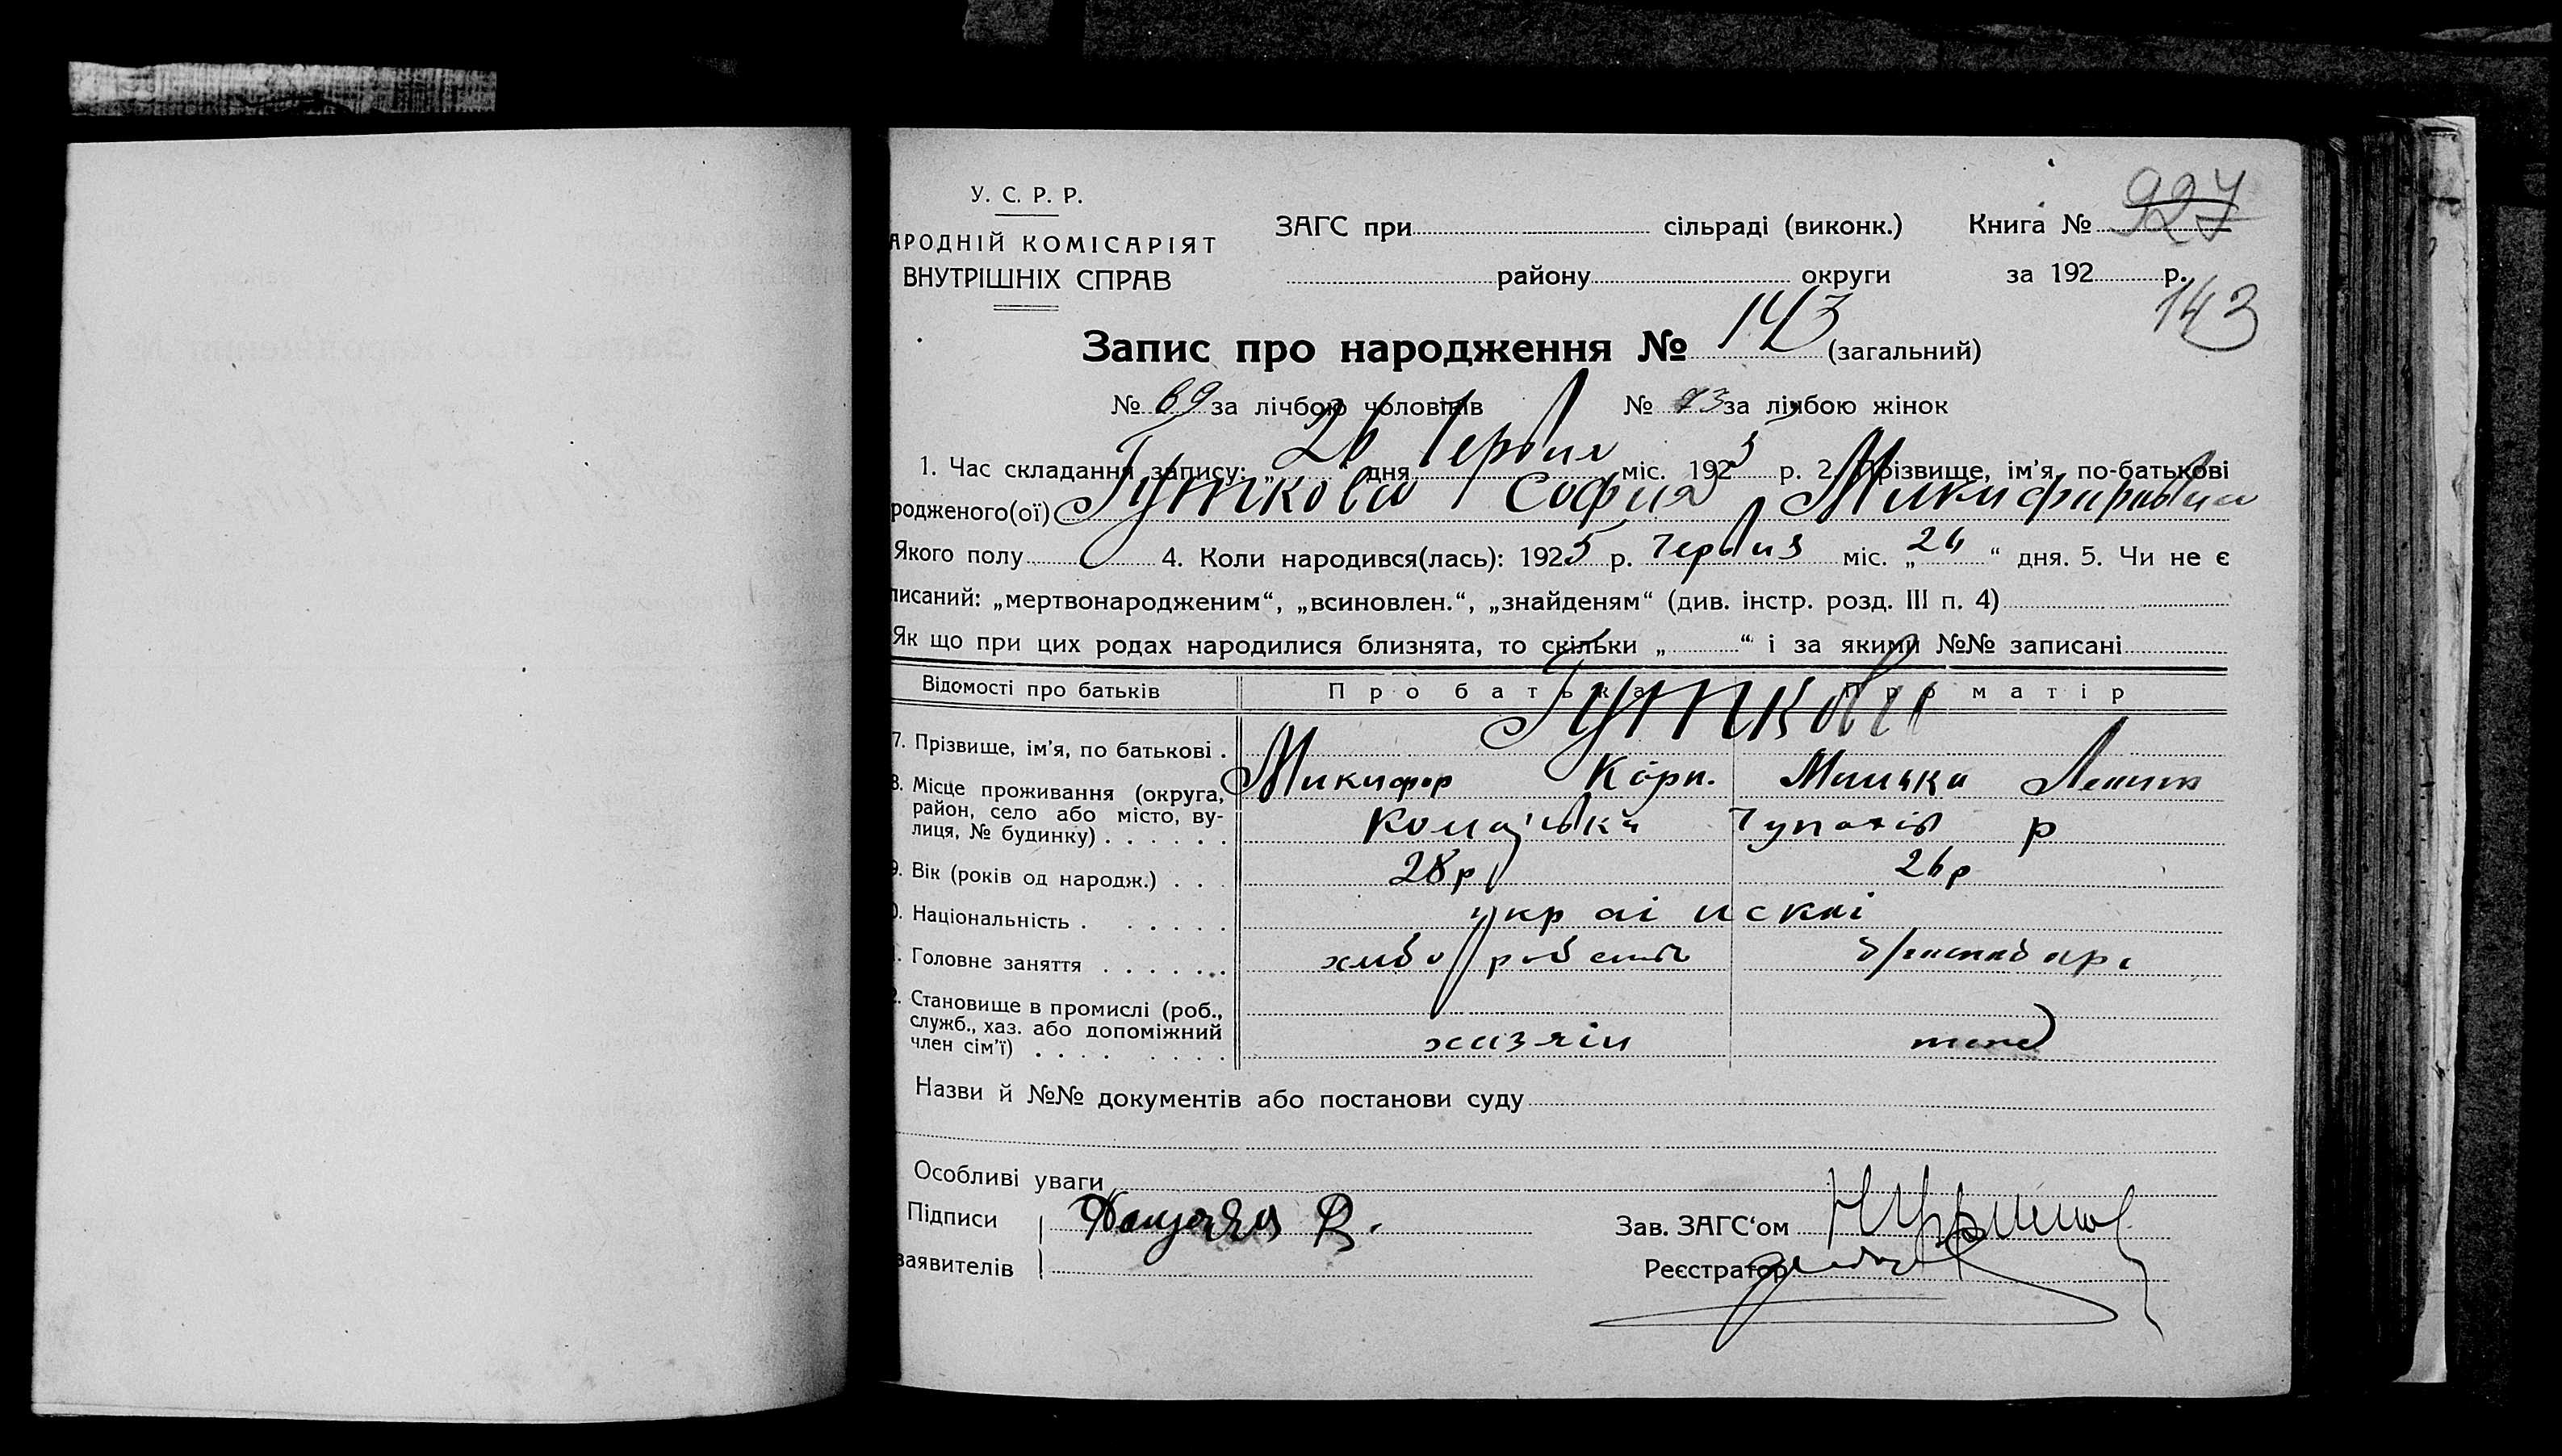 У. С. Р. Р.
АРОДНІЙ КОМІСАРІЯТ
ВНУТРІШНІХ СПРАВ
ЗАГС при сільраді (виконк.)
району округи
Книга № 927
за 192 р.
143
Запис про народження № 143 (загальний)
№ 69 за лічбою чоловіків № 73 за лічбою жінок
1. Час складання запису: „26 дня Червня міс. 1925 р. 2. Прізвище, ім'я, по-батькові
родженого(ої) Гуткова София Микифоровна
Якого полу 4. Коли народився(лась): 1925 р. Червня міс. „24“ дня. 5. Чи не є
писаний: „мертвонародженим“, „всиновлен.“, „знайденям“ (див. інстр. розд. III п. 4)
Як що при цих родах народилися близнята, то скільки „ “ і за якими №№ записані
Відомості про батьків Про батька Про матір
7. Прізвище, ім'я, по батькові . Гуткови
Микифор Карп.
8. Місце проживання (округа, район, село або місто, вулиця, № будинку) . . . . . . р
9. Вік (років од народж.) . . . 28 р 26 р
0. Національність . . . . . . украінскиі
1. Головне заняття . . . . . . хлібо робств
2. Становище в промислі (роб., служб., хаз. або допоміжний член сім'ї) . . . . . . . . хазяін
Назви й №№ документів або постанови суду
Особливі уваги
Підписи В.
заявителів
Зав. ЗАГС'ом
Реєстратор